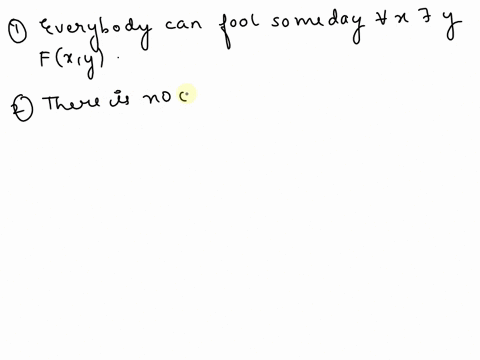 ① Everybody can fool someday ∀ x ∃ y
F(x,y).
② There is no